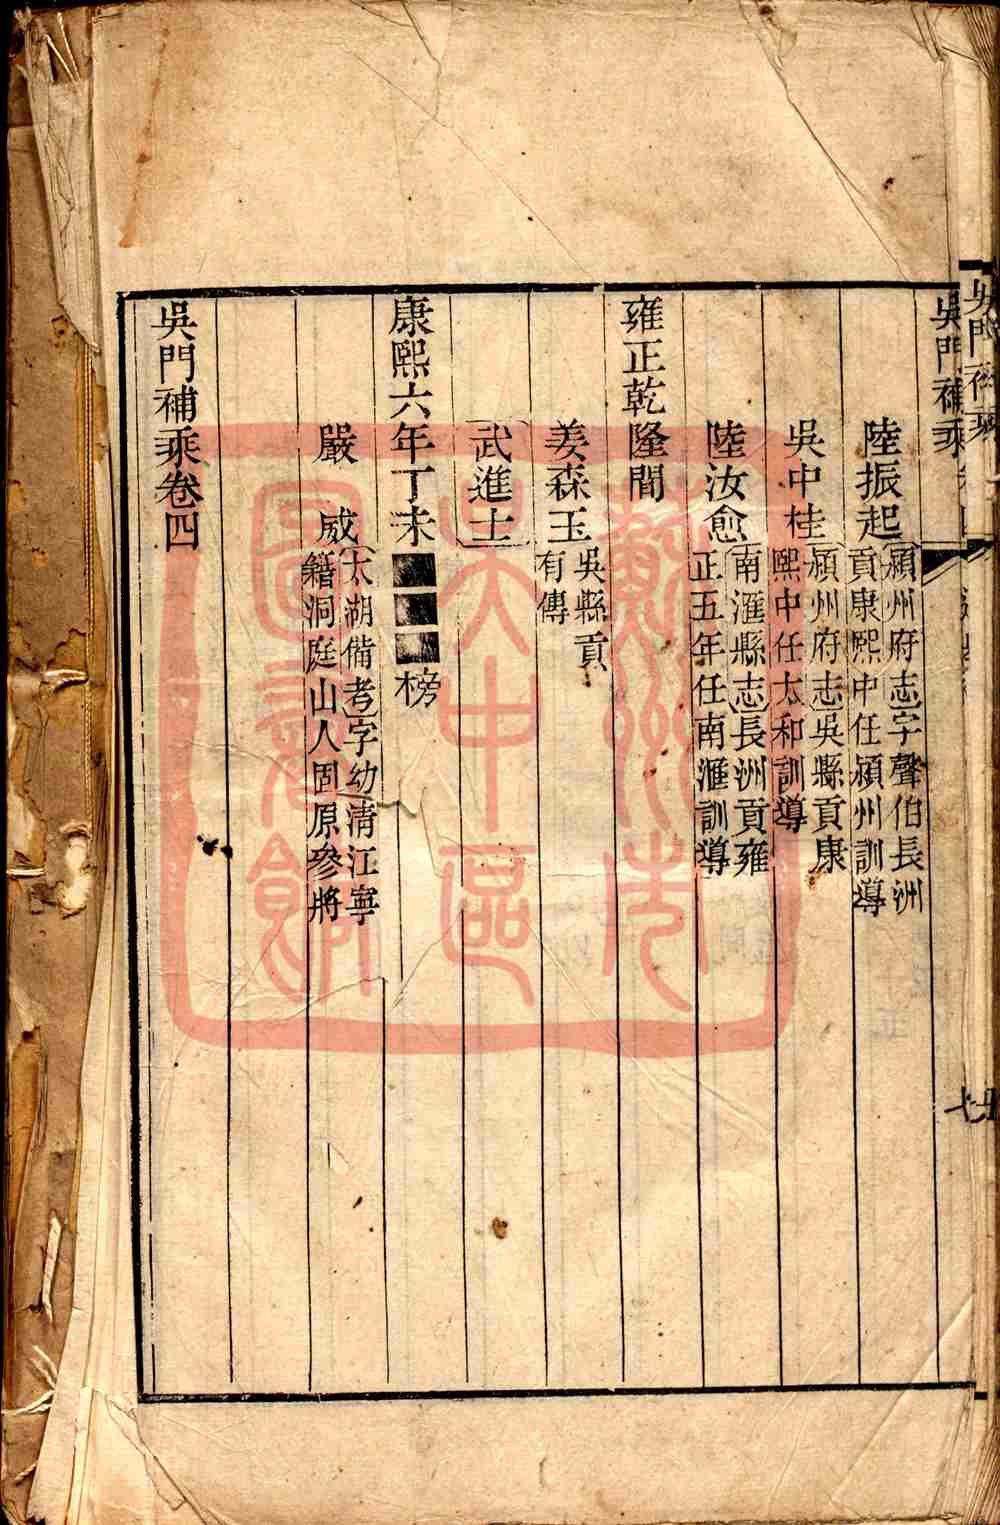 吳門補乘
陸振起
潁州府志字聲伯長洲
貢康熙中任潁州訓導
吳中桂
潁州府志吳縣貢康
熙中任太和訓導
陸汝愈
南滙縣志長洲貢雍
正五年任南滙訓導
雍正乾隆間
姜森玉
吳縣貢
有傳
武進士
康熙六年丁未■■■榜
嚴威
太湖備考字幼清江寧
籍洞庭山人固原參將
吳門補乘卷四
蘇州市
吳中區
圖書館